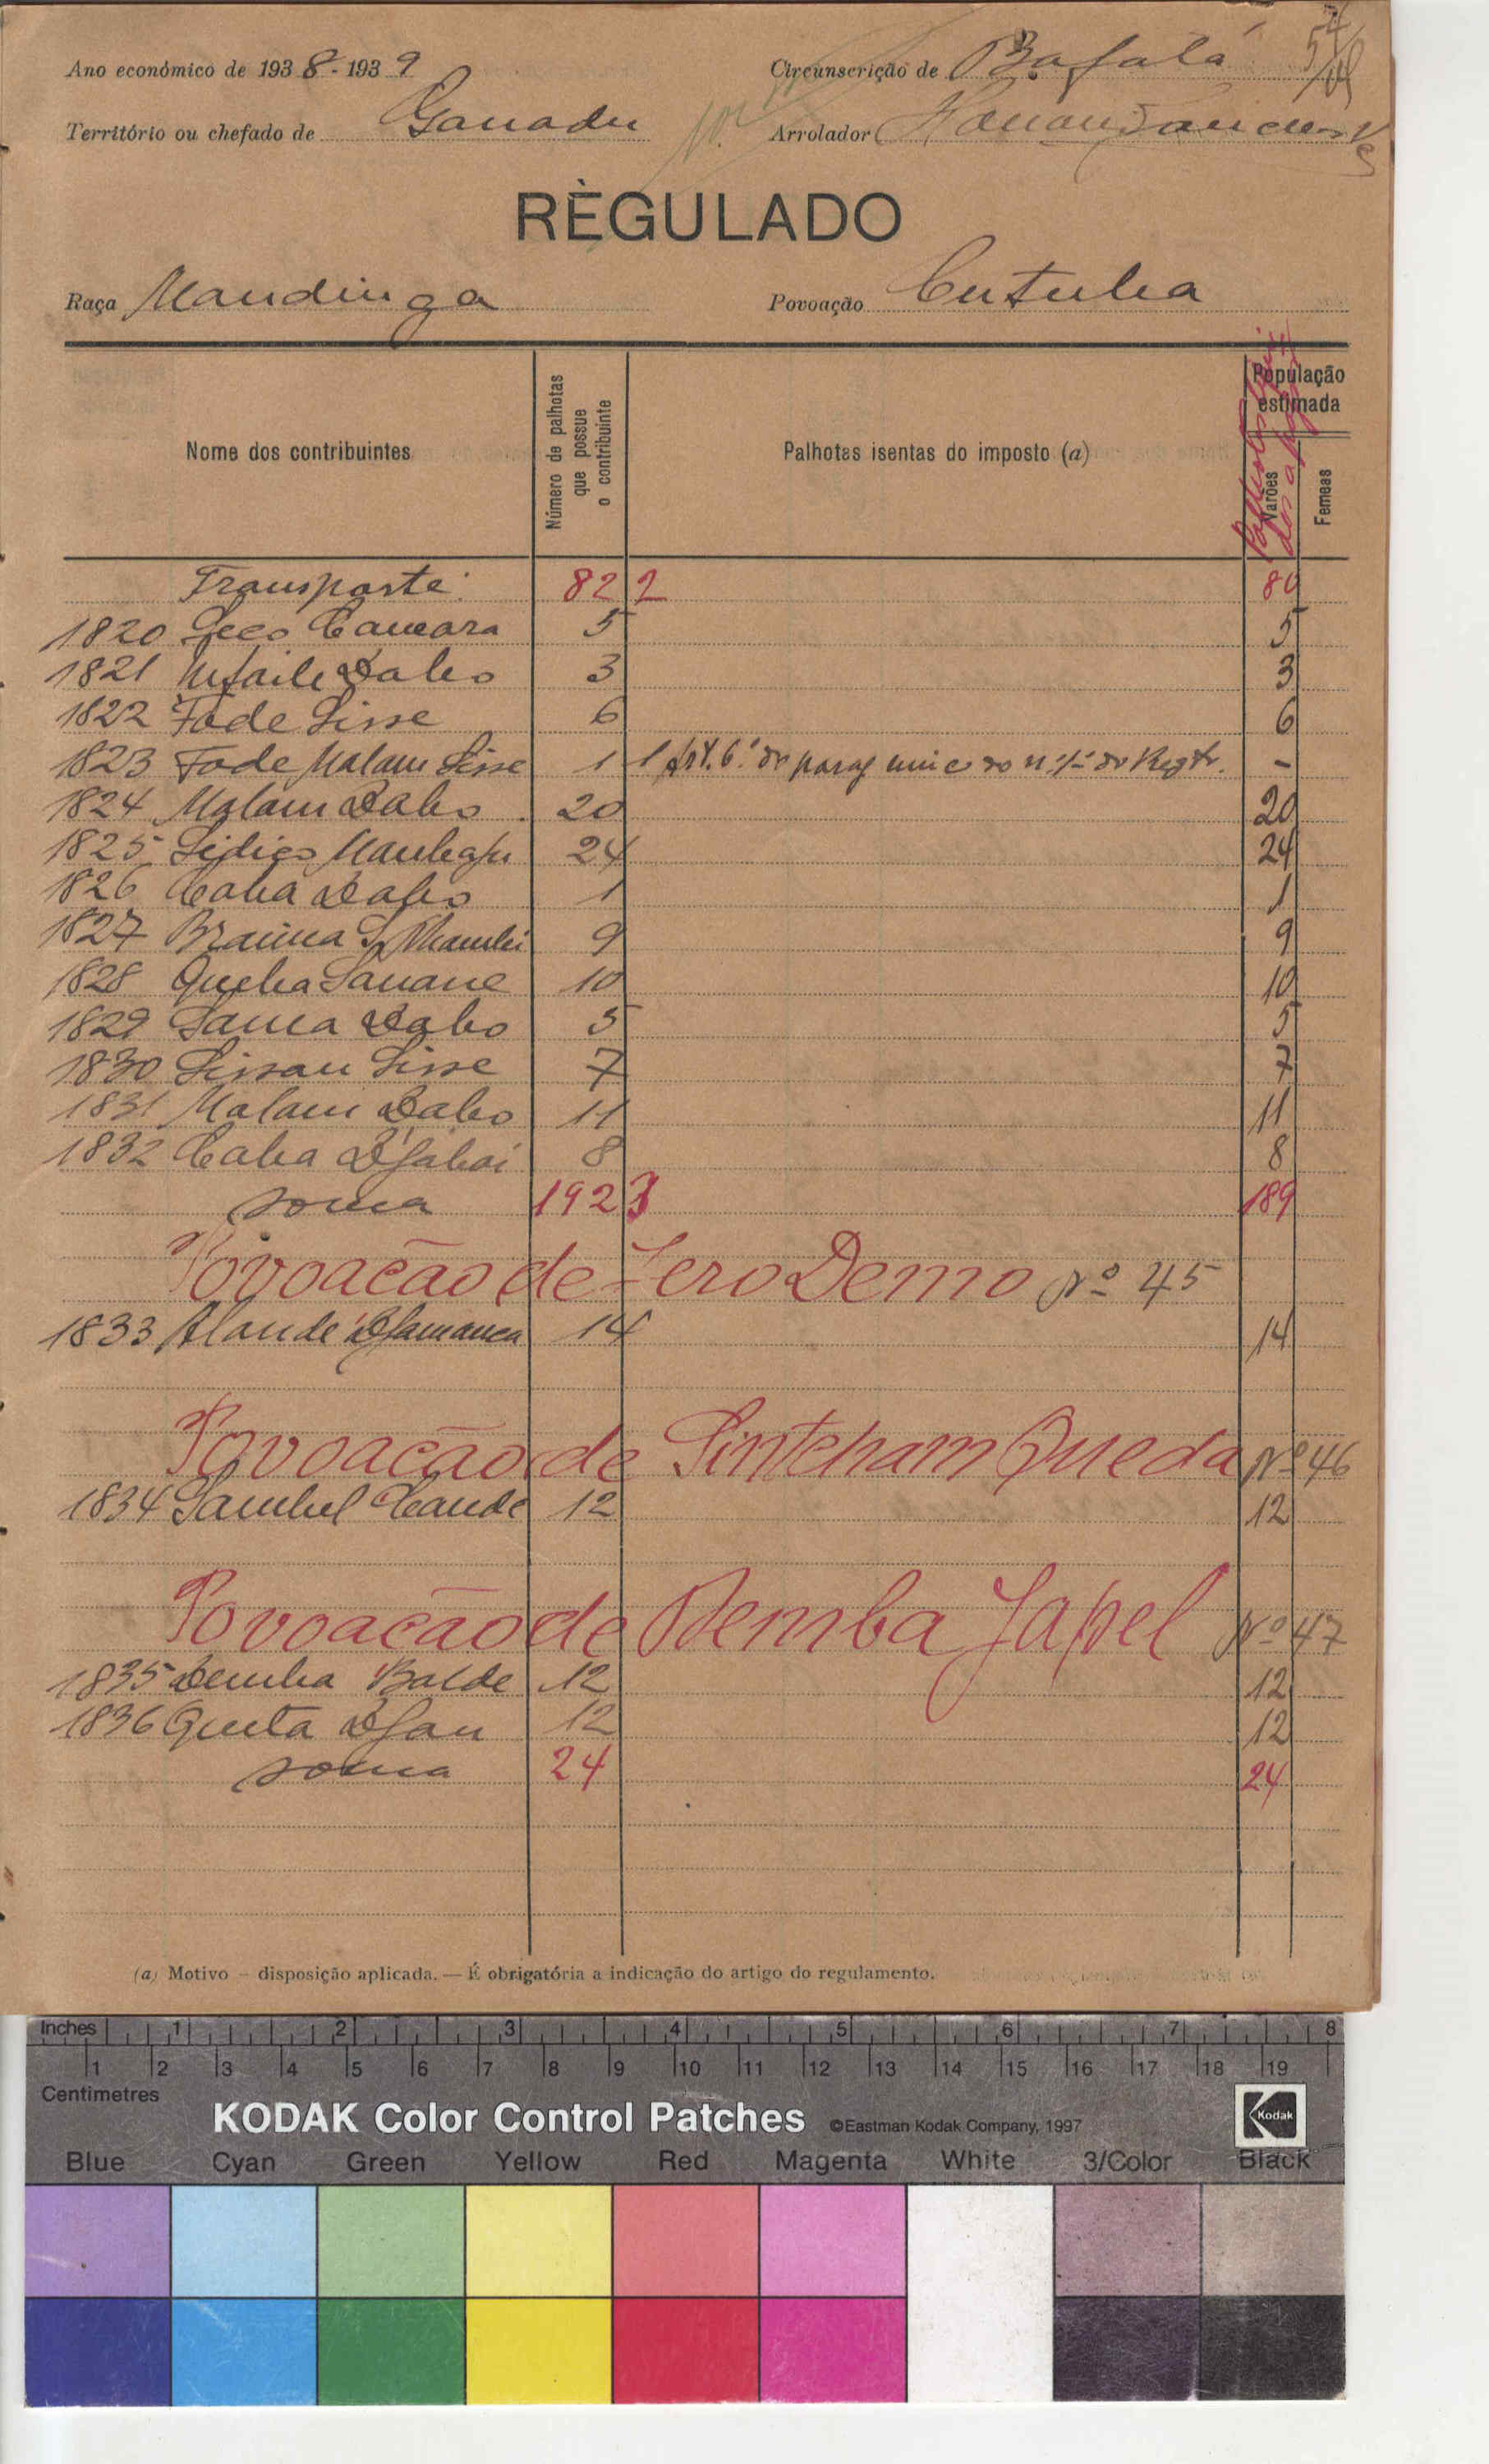 Ano económico de 1938-1939
Circunscrição de Bafatá
Território ou chefado de Ganadu
Arrolador
RÈGULADO
Raça Mandinga
Povoação Cutuba
Nome dos contribuintes
Número de palhotas que possue o contribuinte
Palhotas isentas do imposto (a)
População estimada
Varões
Femeas
Transporte 82 2 80
1820 Seco Camara 5 5
1821 Infaile Dabo 3 3
1822 Fode Sisse 6 6
1823 Fode Malam Sisse 1 1 Art. 6.º do parag unico do n.º 1 do Regt. -
1824 Malam Dabo 20 20
1825 Sidico 24 24
1826 Caba Dabo 1 1
1827 Braima 9 9
1828 Queba Sanane 10 10
1829 Sana Dabo 5 5
1830 Sissau Sisse 7 7
1831 Malam Dabo 11 11
1832 Caba Djabai 8 8
soma 192 3 189
Povoação de Sero Demo Nº 45
1833 Alande Djamanca 14 14
Povoação de Sintcham Queda Nº 46
1834 Sambel Cande 12 12
Povoação de Demba Japel Nº 47
1835 Demba Balde 12 12
1836 Queta Djau 12 12
soma 24 24
(a) Motivo - disposição aplicada. — É obrigatória a indicação do artigo do regulamento.
Inches 1 2 3 4 5 6 7 8
1 2 3 4 5 6 7 8 9 10 11 12 13 14 15 16 17 18 19
Centimetres
KODAK Color Control Patches ©Eastman Kodak Company, 1997 Kodak
Blue Cyan Green Yellow Red Magenta White 3/Color Black